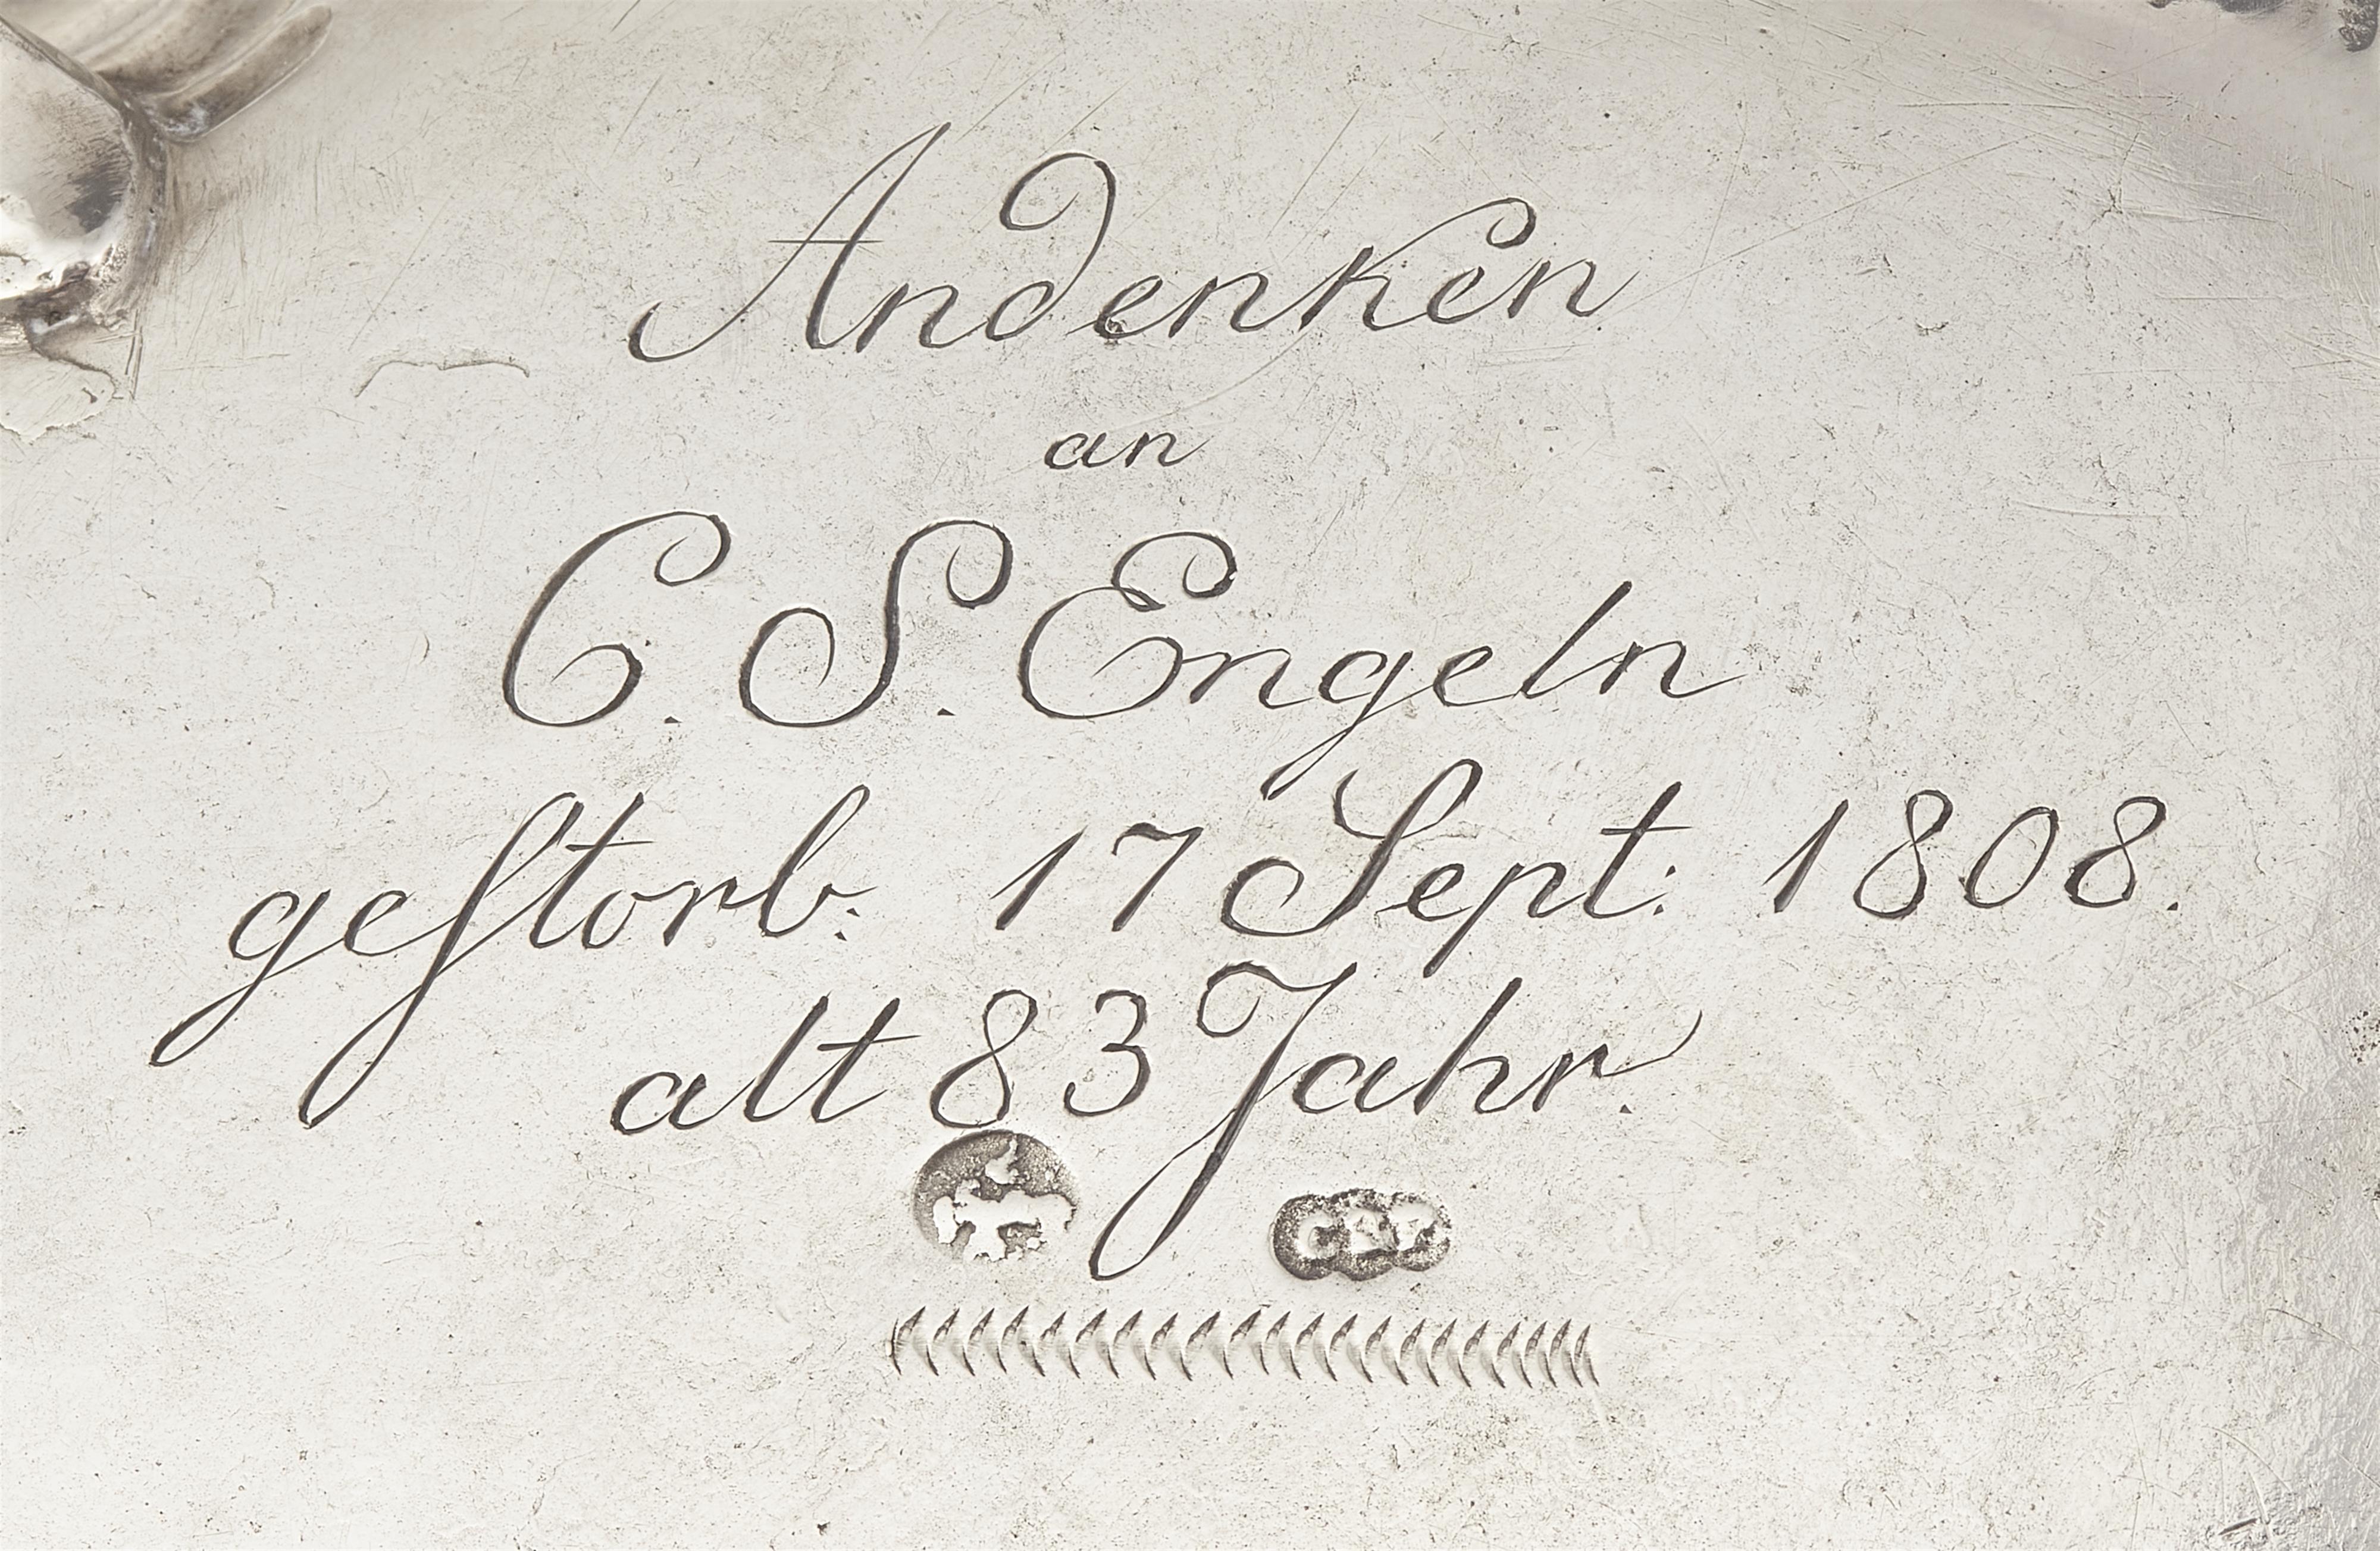 Andenken
an
C. S. Engeln
geſtorb: 17 Sept: 1808.
alt 83 Jahr.